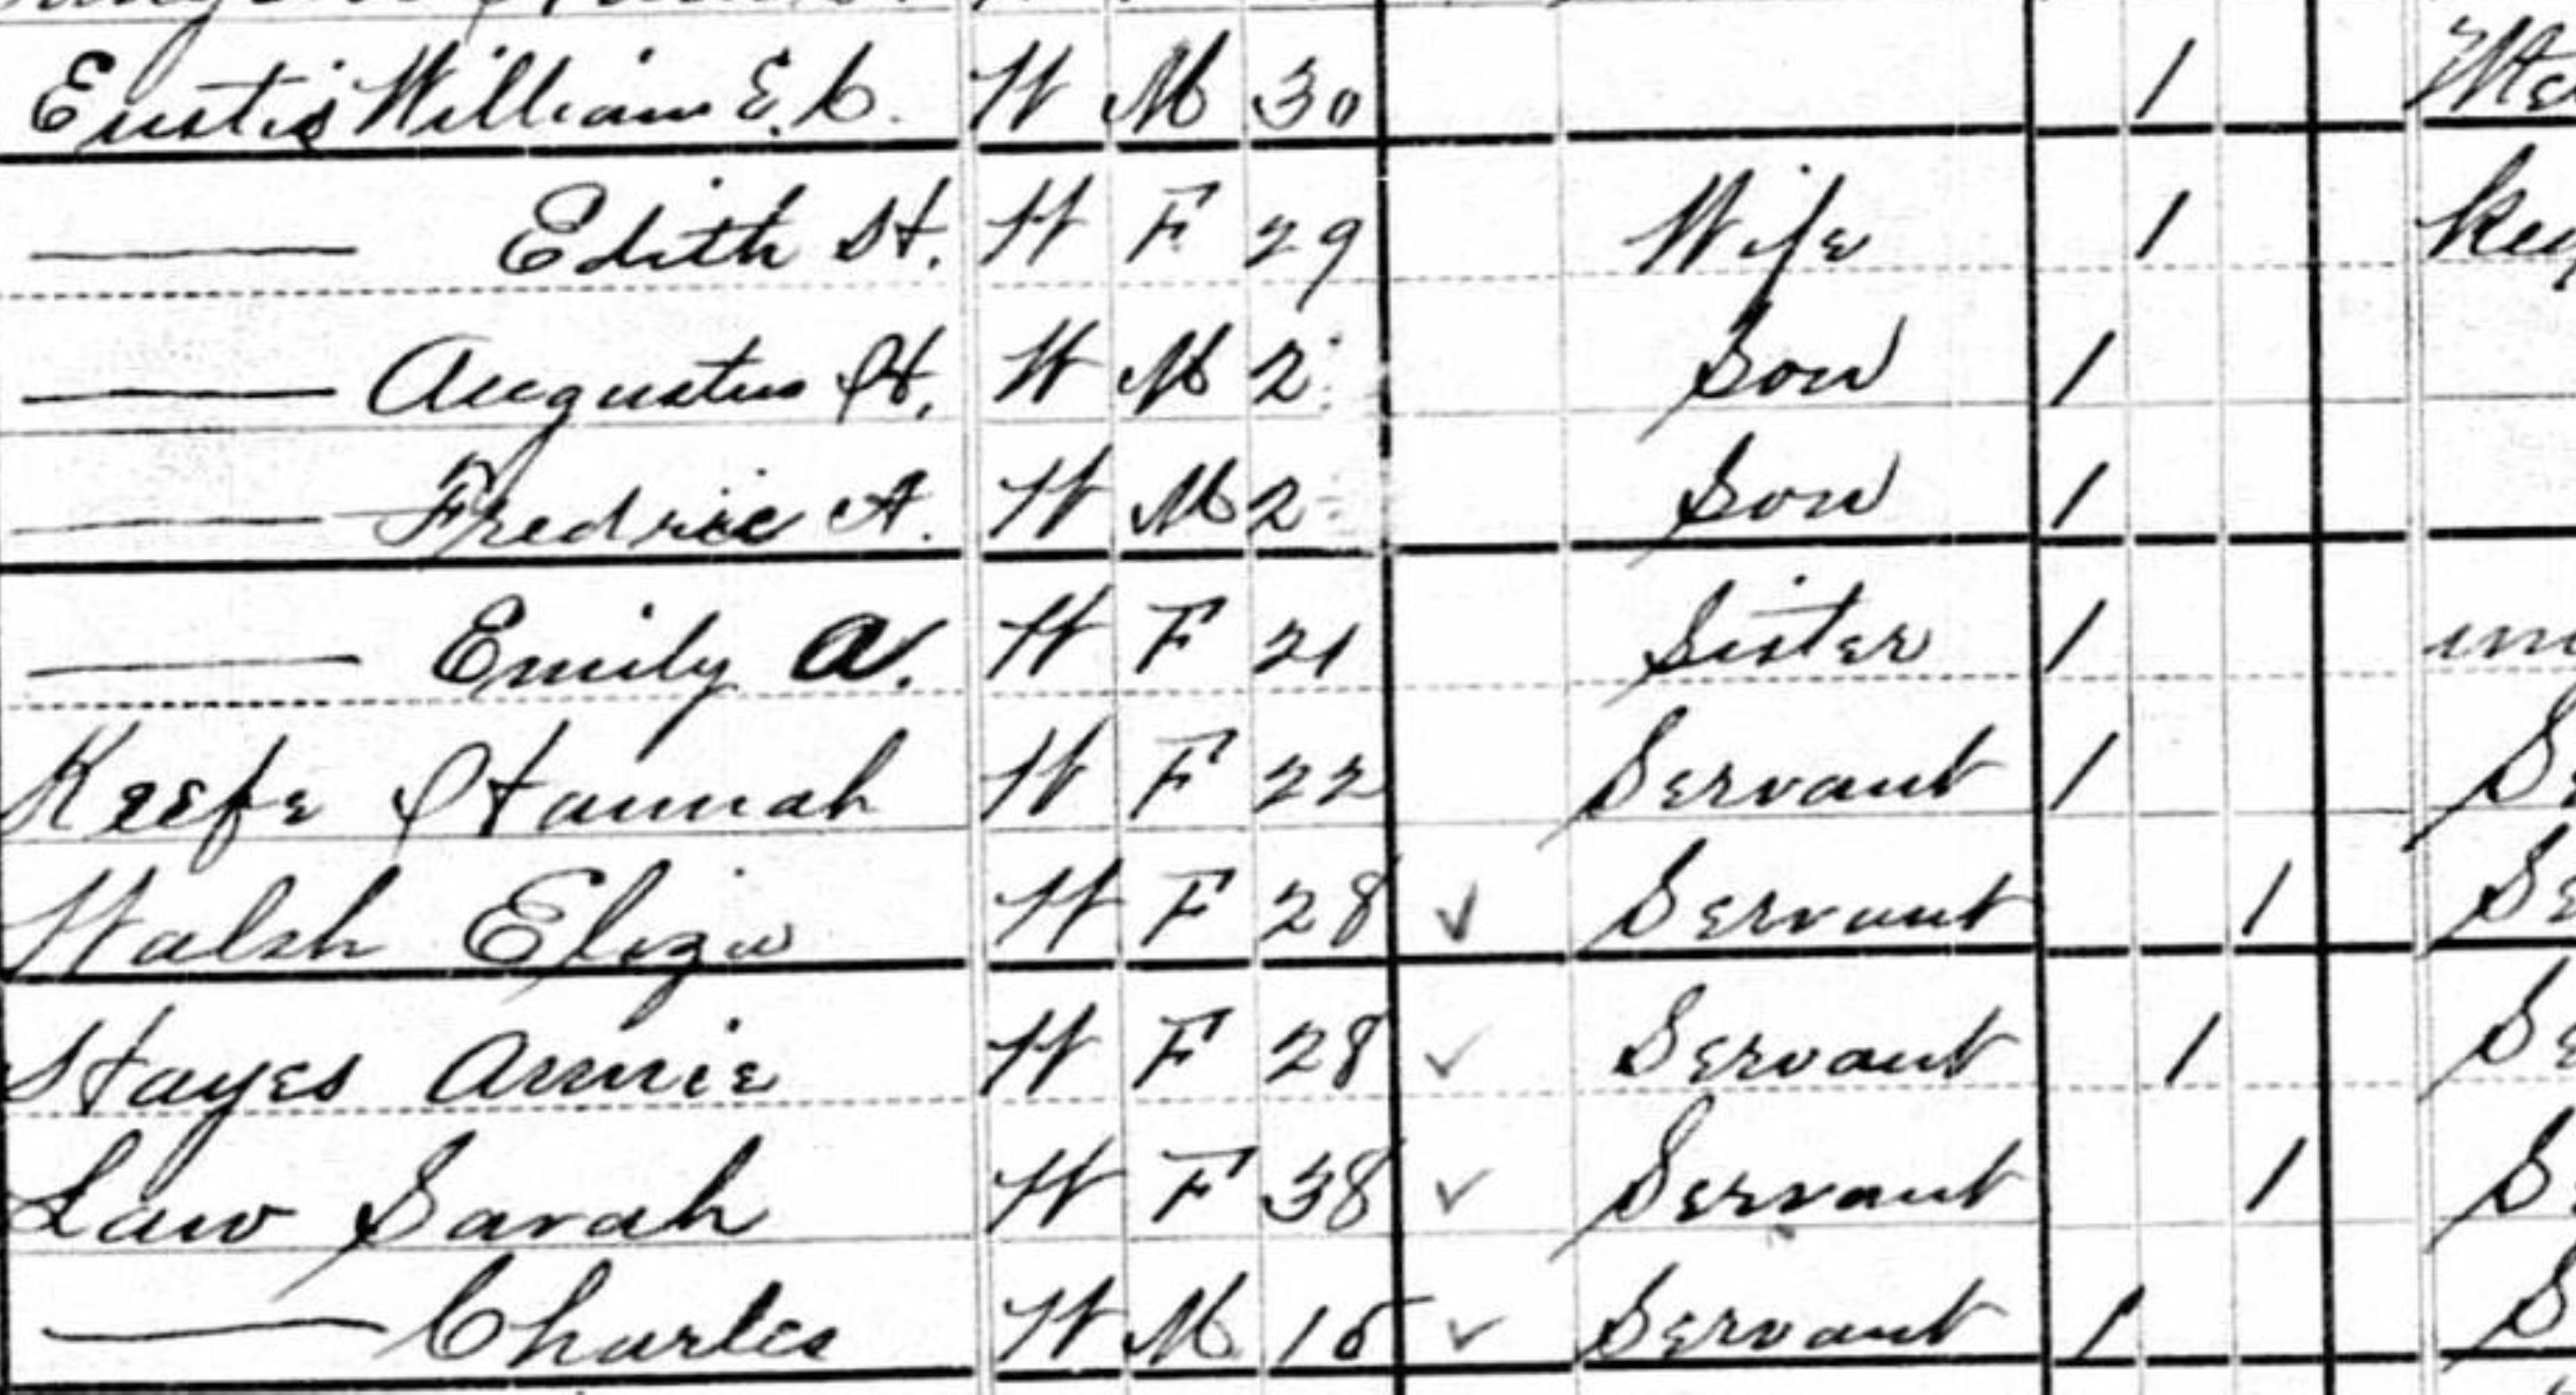 Eustis William E. C. W M 30 1
Edith H. W F 29 Wife 1
Augustus H. W M 2 Son 1
Fredric A. W M 2 Son 1
Emily A. W F 21 Sister 1
Keefe Hannah W F 22 Servant 1
Walsh Eliza W F 28 ✓ Servant 1
Hayes Annie W F 28 ✓ Servant 1
Law Sarah W F 38 ✓ Servant 1
Charles W M 15 ✓ Servant 1